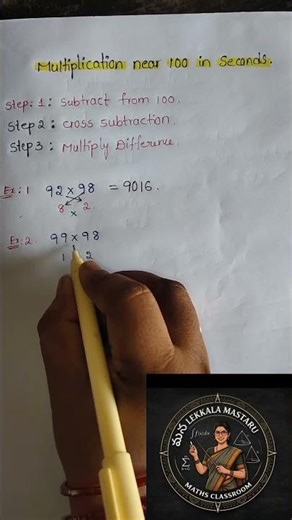 Multiplication near 100 in Seconds.
Step: 1: Subtract from 100.
Step 2: Cross Subtraction.
Step 3: Multiply Difference.
Ex: 1 92 x 98 = 9016.
8 x 2
Ex: 2. 99 x 98
1 2
మన LEKKALA MASTARU
∫f(x)dx
Σ
MATHS CLASSROOM